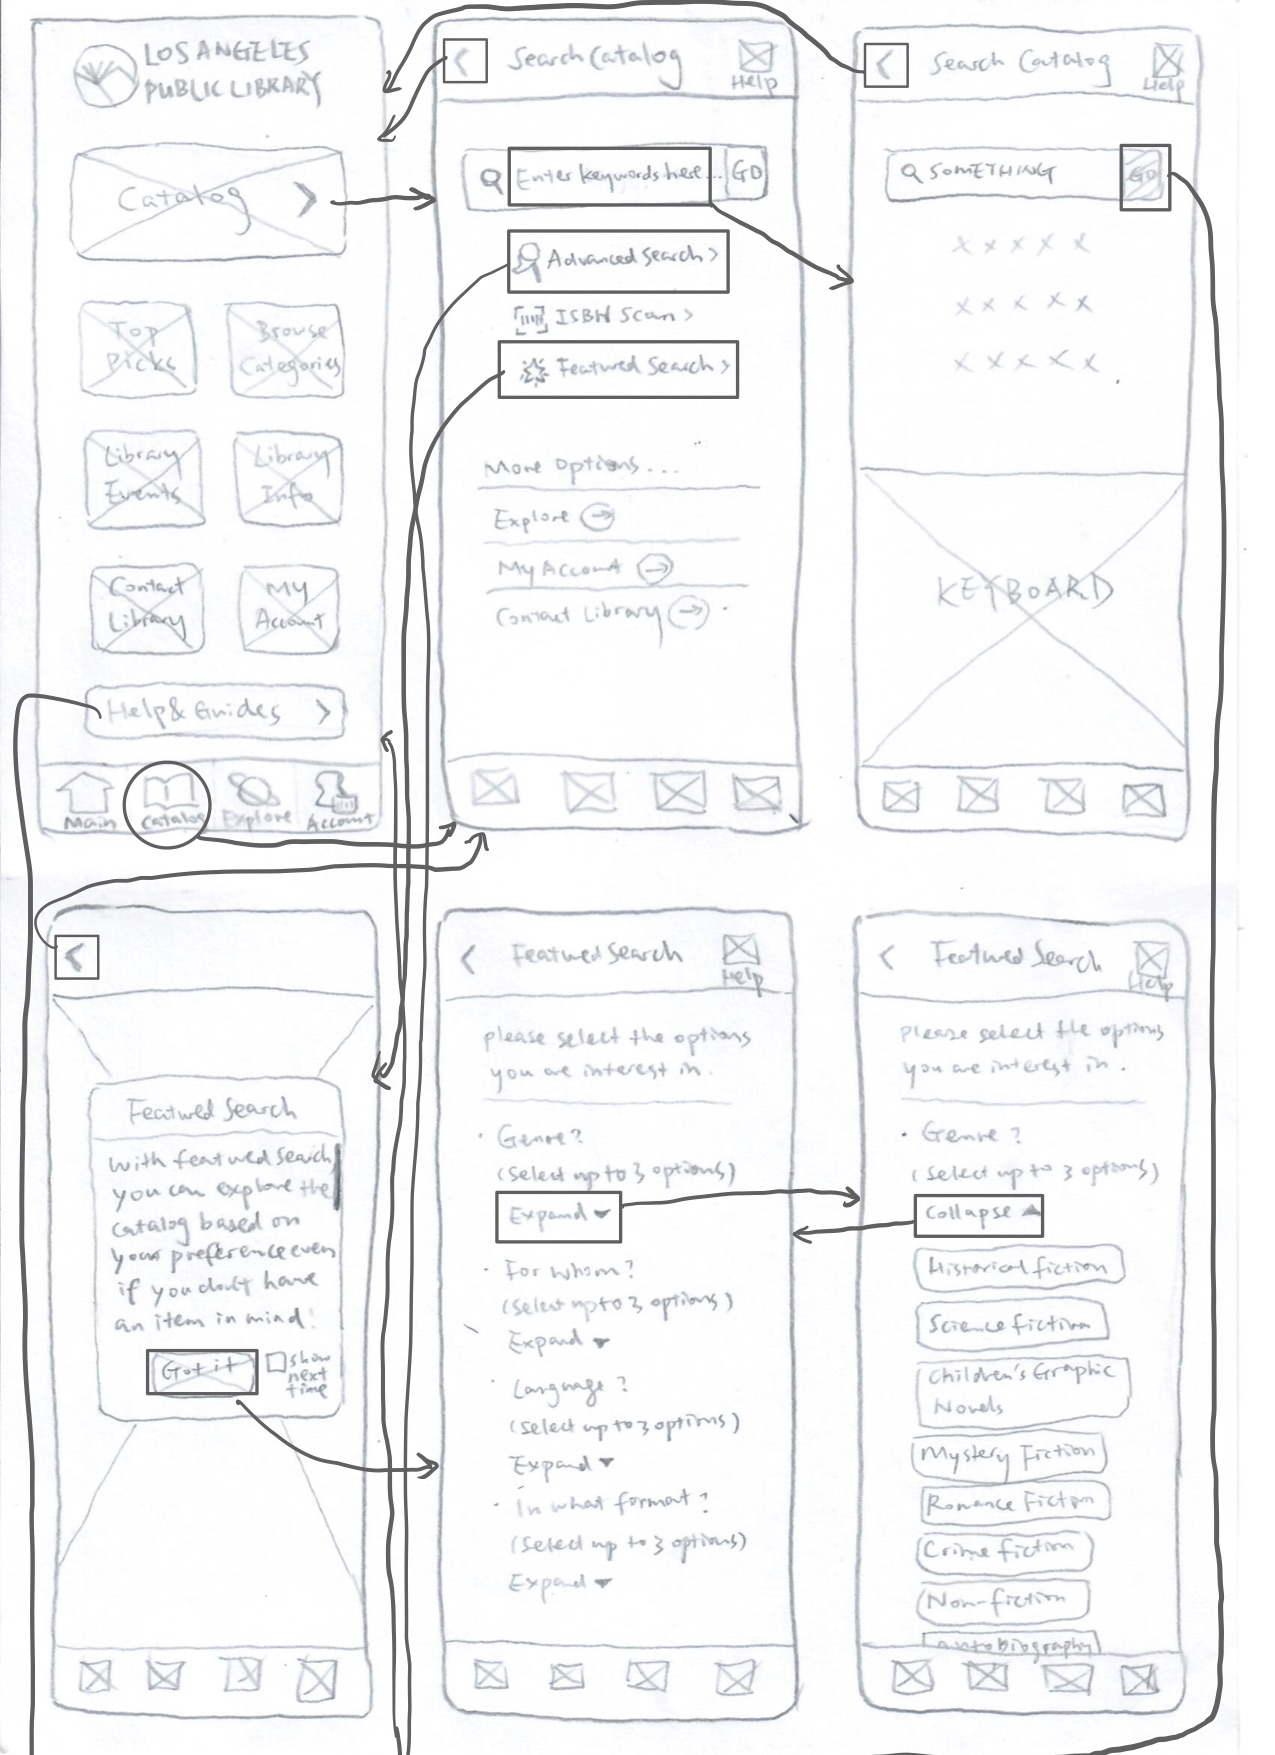 LOS ANGELES
PUBLIC LIBRARY
Catalog >
Top
Picks
Browse
Categories
Library
Events
Library
Info
Contact
Library
My
Account
Help & Guides >
Main
Catalog
Explore
Account
< Search Catalog
Help
Enter keywords here... GO
Advanced Search >
ISBN Scan >
Featured Search >
More Options...
Explore →
My Account →
Contact Library →
< Search Catalog
Help
SOMETHING GO
x x x x x
x x x x x
x x x x x
KEYBOARD
<
Featured Search
With featured search,
you can explore the
catalog based on
your preference even
if you don't have
an item in mind!
Got it
show
next
time
< Featured Search
Help
please select the options
you are interest in.
· Genre?
(Select up to 3 options)
Expand ▼
· For whom?
(Select up to 3 options)
Expand ▼
· Language?
(Select up to 3 options)
Expand ▼
· In what format?
(Select up to 3 options)
Expand ▼
< Featured Search
Help
please select the options
you are interest in.
· Genre?
(Select up to 3 options)
Collapse ▲
Historical fiction
Science fiction
Children's Graphic
Novels
Mystery Fiction
Romance Fiction
Crime fiction
Non-fiction
autobiography